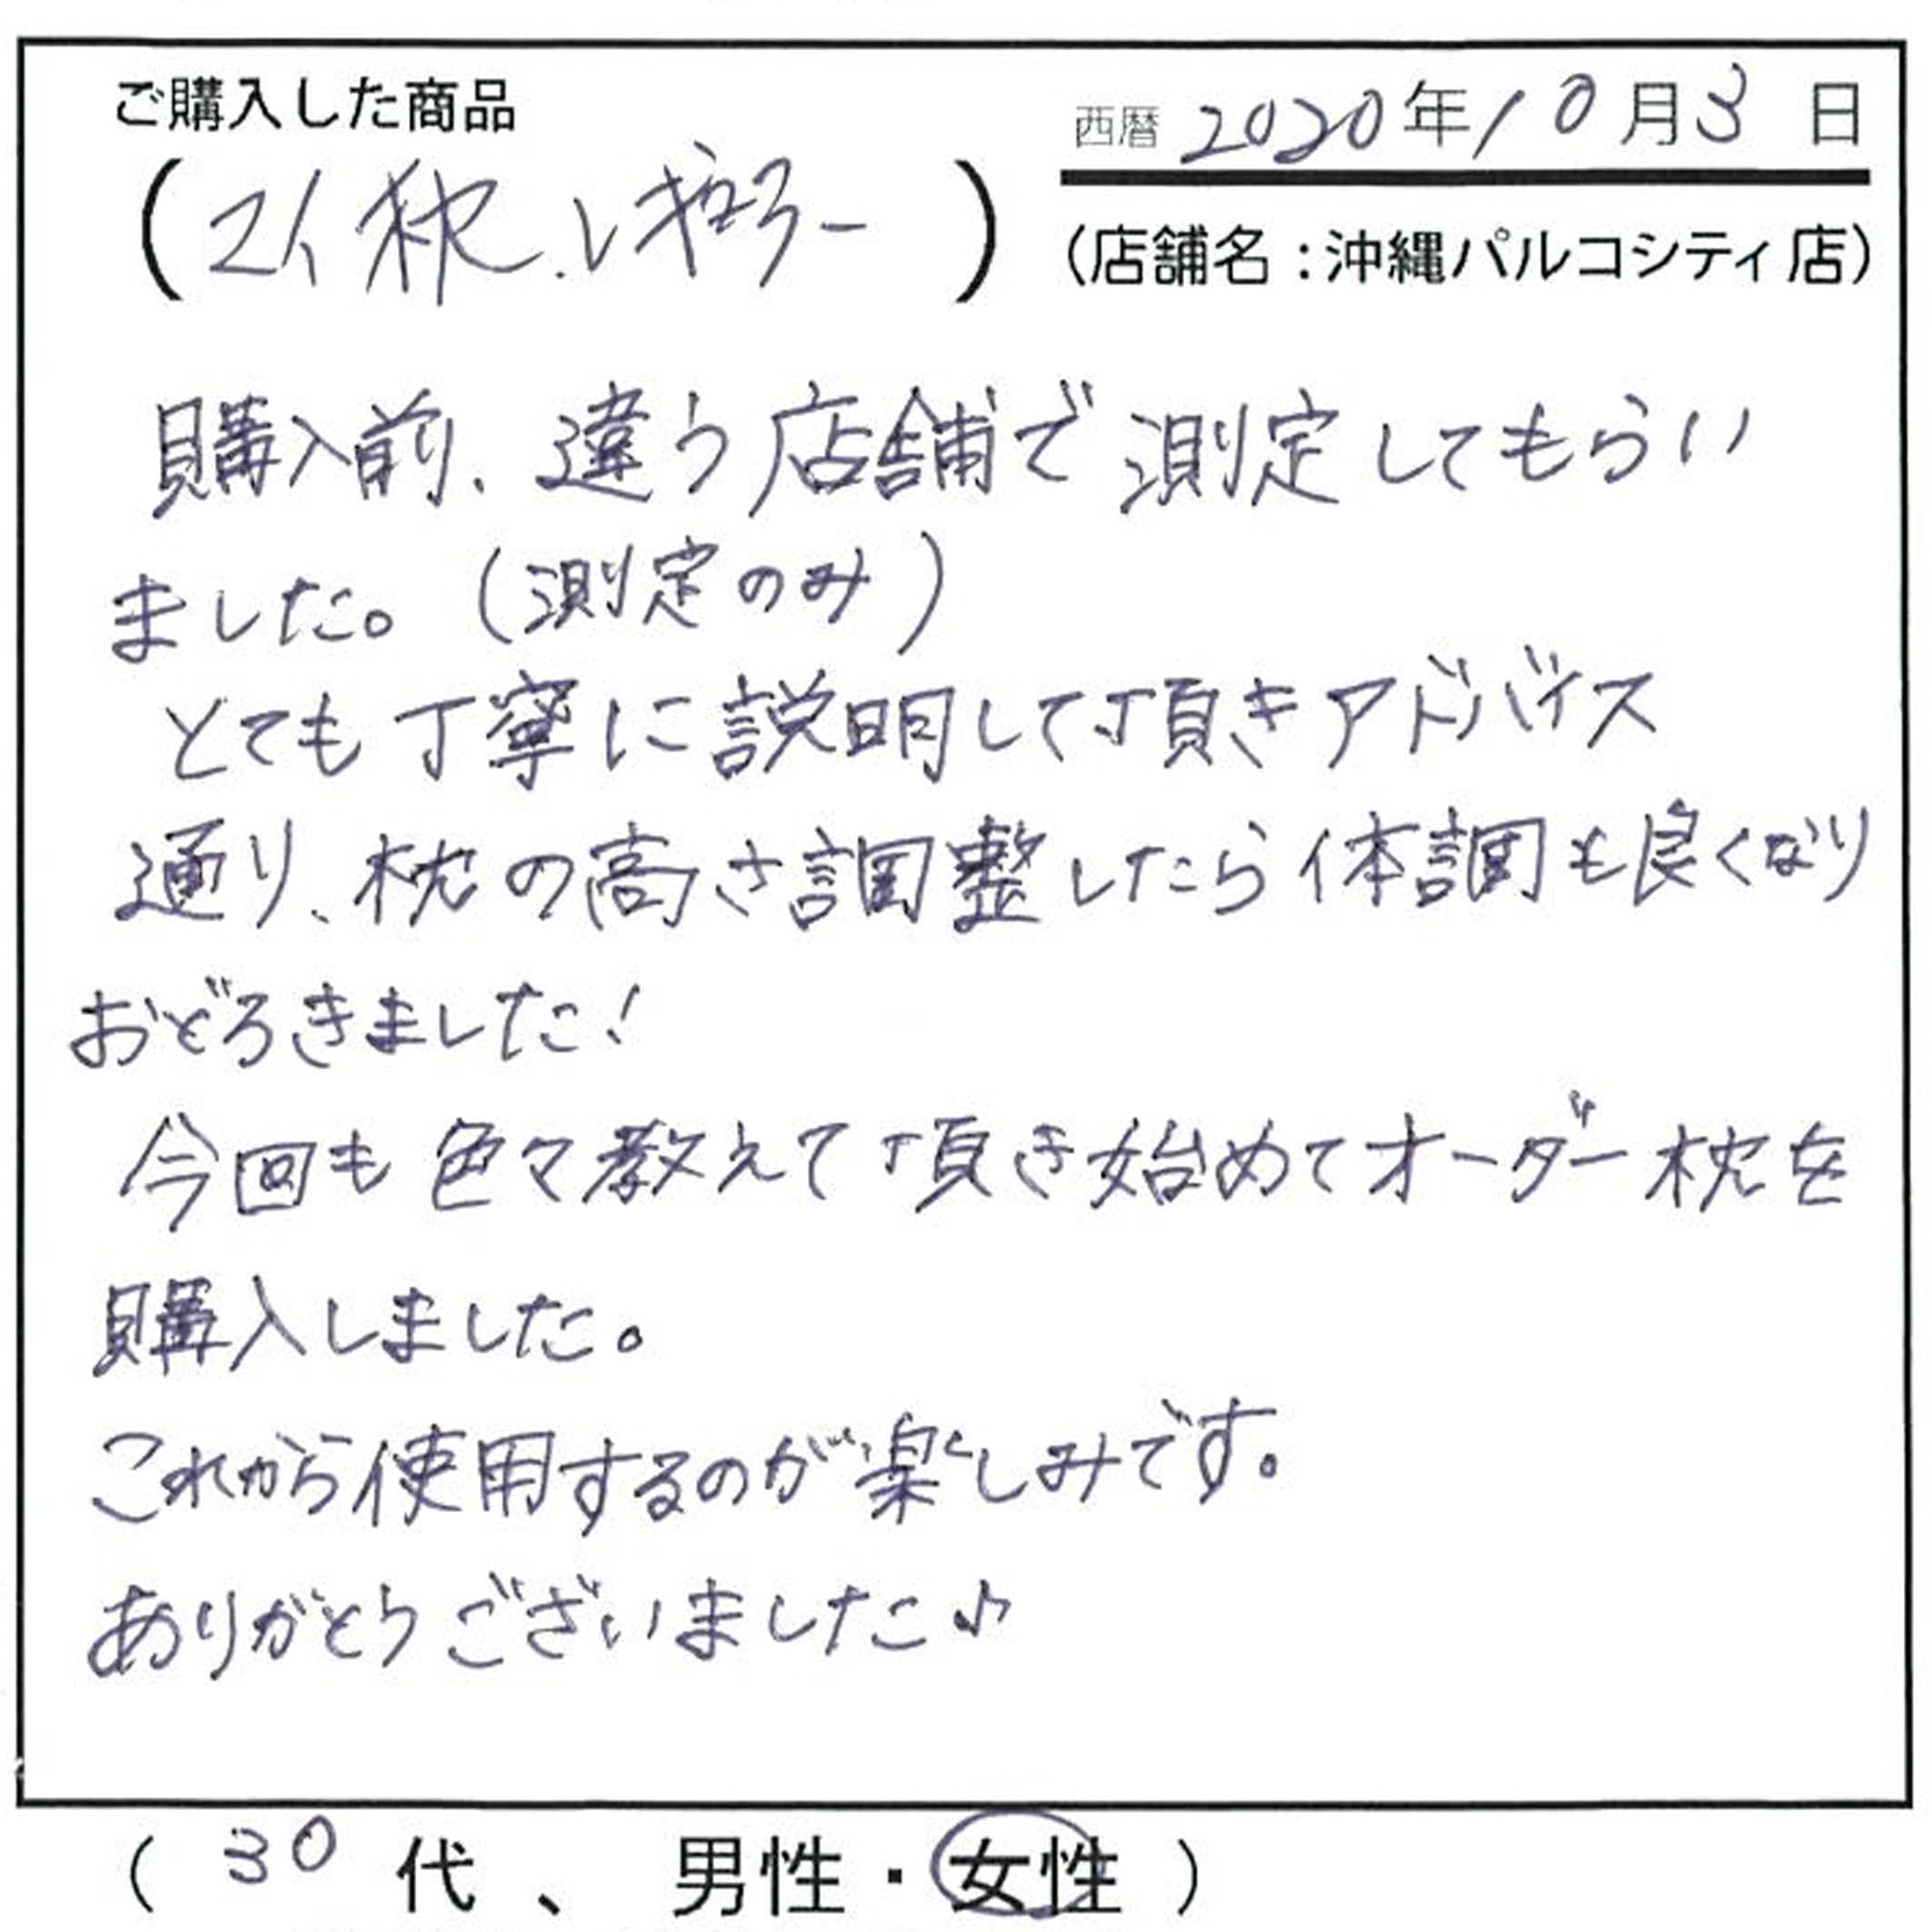 ご購入した商品
西暦 2020年10月3日
(マイ枕.レギュラー)
(店舗名:沖縄パルコシティ店)
購入前、違う店舗で測定してもらい
ました。(測定のみ)
とても丁寧に説明して頂きアドバイス
通り、枕の高さ調整したら体調も良くなり
おどろきました!
今回も色々教えて頂き始めてオーダー枕を
購入しました。
これから使用するのが楽しみです。
ありがとうございました♪
(30代、男性・女性)